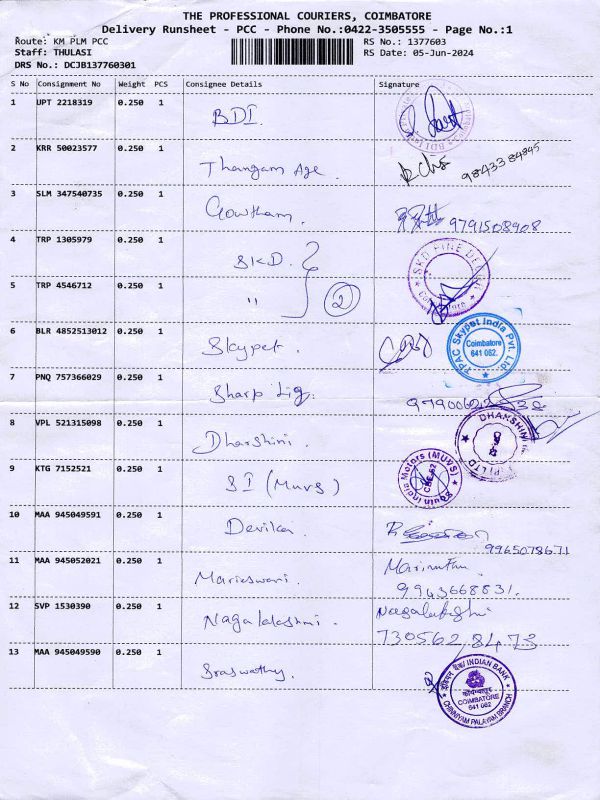 THE PROFESSIONAL COURIERS, COIMBATORE
Delivery Runsheet - PCC - Phone No.:0422-3505555 - Page No.:1
Route: KM PLM PCC
Staff: THULASI
DRS No.: DCJB137760301
RS No.: 1377603
RS Date: 05-Jun-2024
S No Consignment No Weight PCS Consignee Details Signature
1 UPT 2218319 0.250 1 BDI
2 KRR 50023577 0.250 1 Thangam Age. 9843384845
3 SLM 347540735 0.250 1 Gowtham. 9791508908
4 TRP 1305979 0.250 1 SKD. SKD FINE
5 TRP 4546712 0.250 1 " 2
6 BLR 4852513012 0.250 1 Skypet. TPAC Skypet India Pvt. Ltd. Coimbatore 641 062.
7 PNQ 757366029 0.250 1 Sharp
8 VPL 521315098 0.250 1 Dharshini. DHARSHINI
9 KTG 7152521 0.250 1 SI (Muvs) South India Motors (MUVS) CBE-62
10 MAA 945049591 0.250 1 Devika. 9965078671
11 MAA 945052021 0.250 1 Marieswari. Marimuthu 9943668831.
12 SVP 1530390 0.250 1 Nagalakshmi. Nagalakshmi 7305628473
13 MAA 945049590 0.250 1 Sraswathy. इंडियन बैंक/ INDIAN BANK कोयम्बत्तूर COIMBATORE 641 062 CHINNIYAM PALAYAM BRANCH